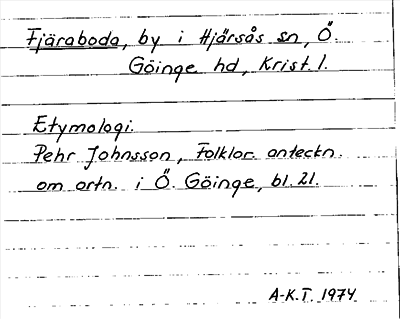 Fjäraboda, by i Hjärsås sn, Ö.
Göinge hd, Krist. l.
Etymologi.
Pehr Johnsson, Folklor. anteckn.
om ortn. i Ö. Göinge, bl. 21.
A-K.T. 1974